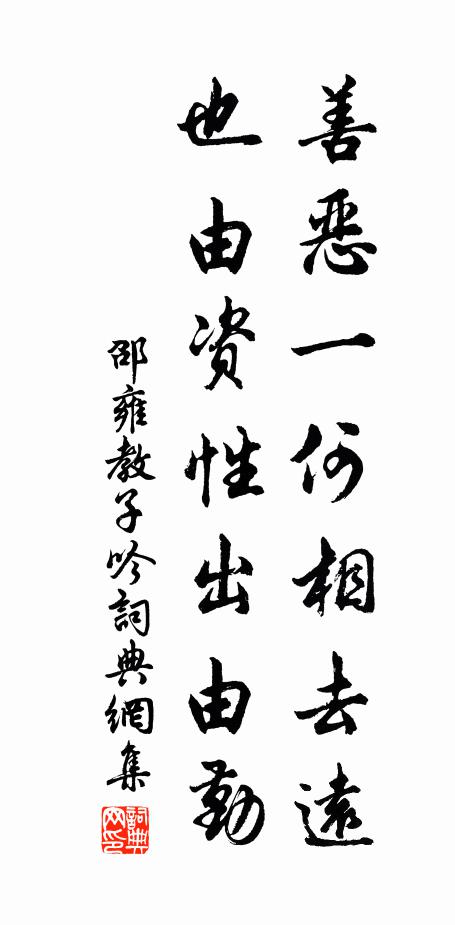 善惡一何相去遠
也由資性出由勤
邵雍教子吟詞典網集
詞典网印